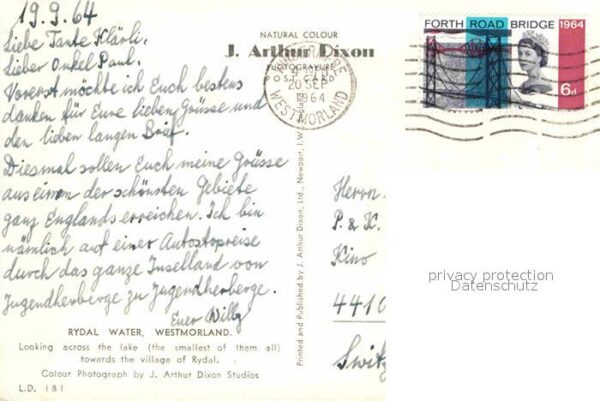 19.9.64
Liebe Tante Klärli,
Lieber Onkel Paul.
Vorerst möchte ich Euch bestens
danken für Eure lieben Grüsse und
den lieben langen Brief.
Diesmal sollen Euch meine Grüsse
aus einen der schönsten Gebiete
ganz Englands erreichen. Ich bin
nämlich auf einer Autostopreise
durch das ganze Inselland von
Jugendherberge zu Jugendherberge.
Euer Willy
RYDAL WATER, WESTMORLAND.
Looking across the lake (the smallest of them all)
towards the village of Rydal.
Colour Photograph by J. Arthur Dixon Studios
L.D. 181
NATURAL COLOUR
J. Arthur Dixon
PHOTOGRAVURE
POST CARD
20 SEP
1964
WESTMORLAND
Printed and Published by J. Arthur Dixon, Ltd., Newport, I.W.
FORTH ROAD BRIDGE 1964
6d
Herrn
P. & K.
Kino
4410
Switz
privacy protection
Datenschutz